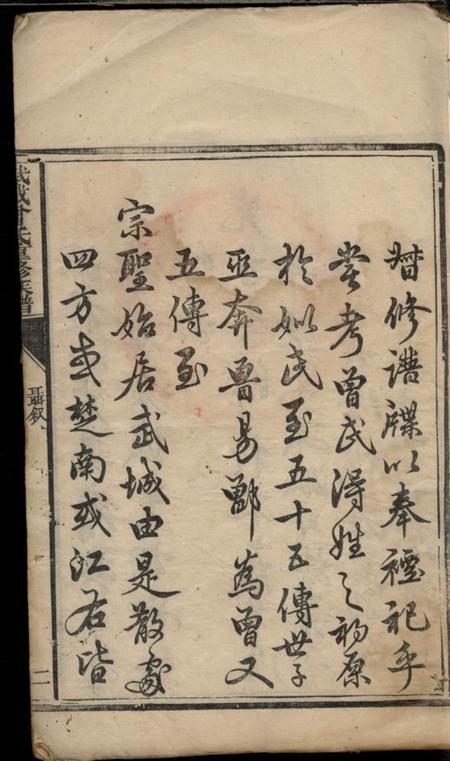 朁修譜牒以奉禋祀乎
嘗考曾氏得姓之初原
於姒氏至五十五傳世子
巫奔魯易鄫為曾又
五傳至
宗聖始居武城由是散處
四方或楚南或江右皆
武城曾氏重修族譜
聶叙
二